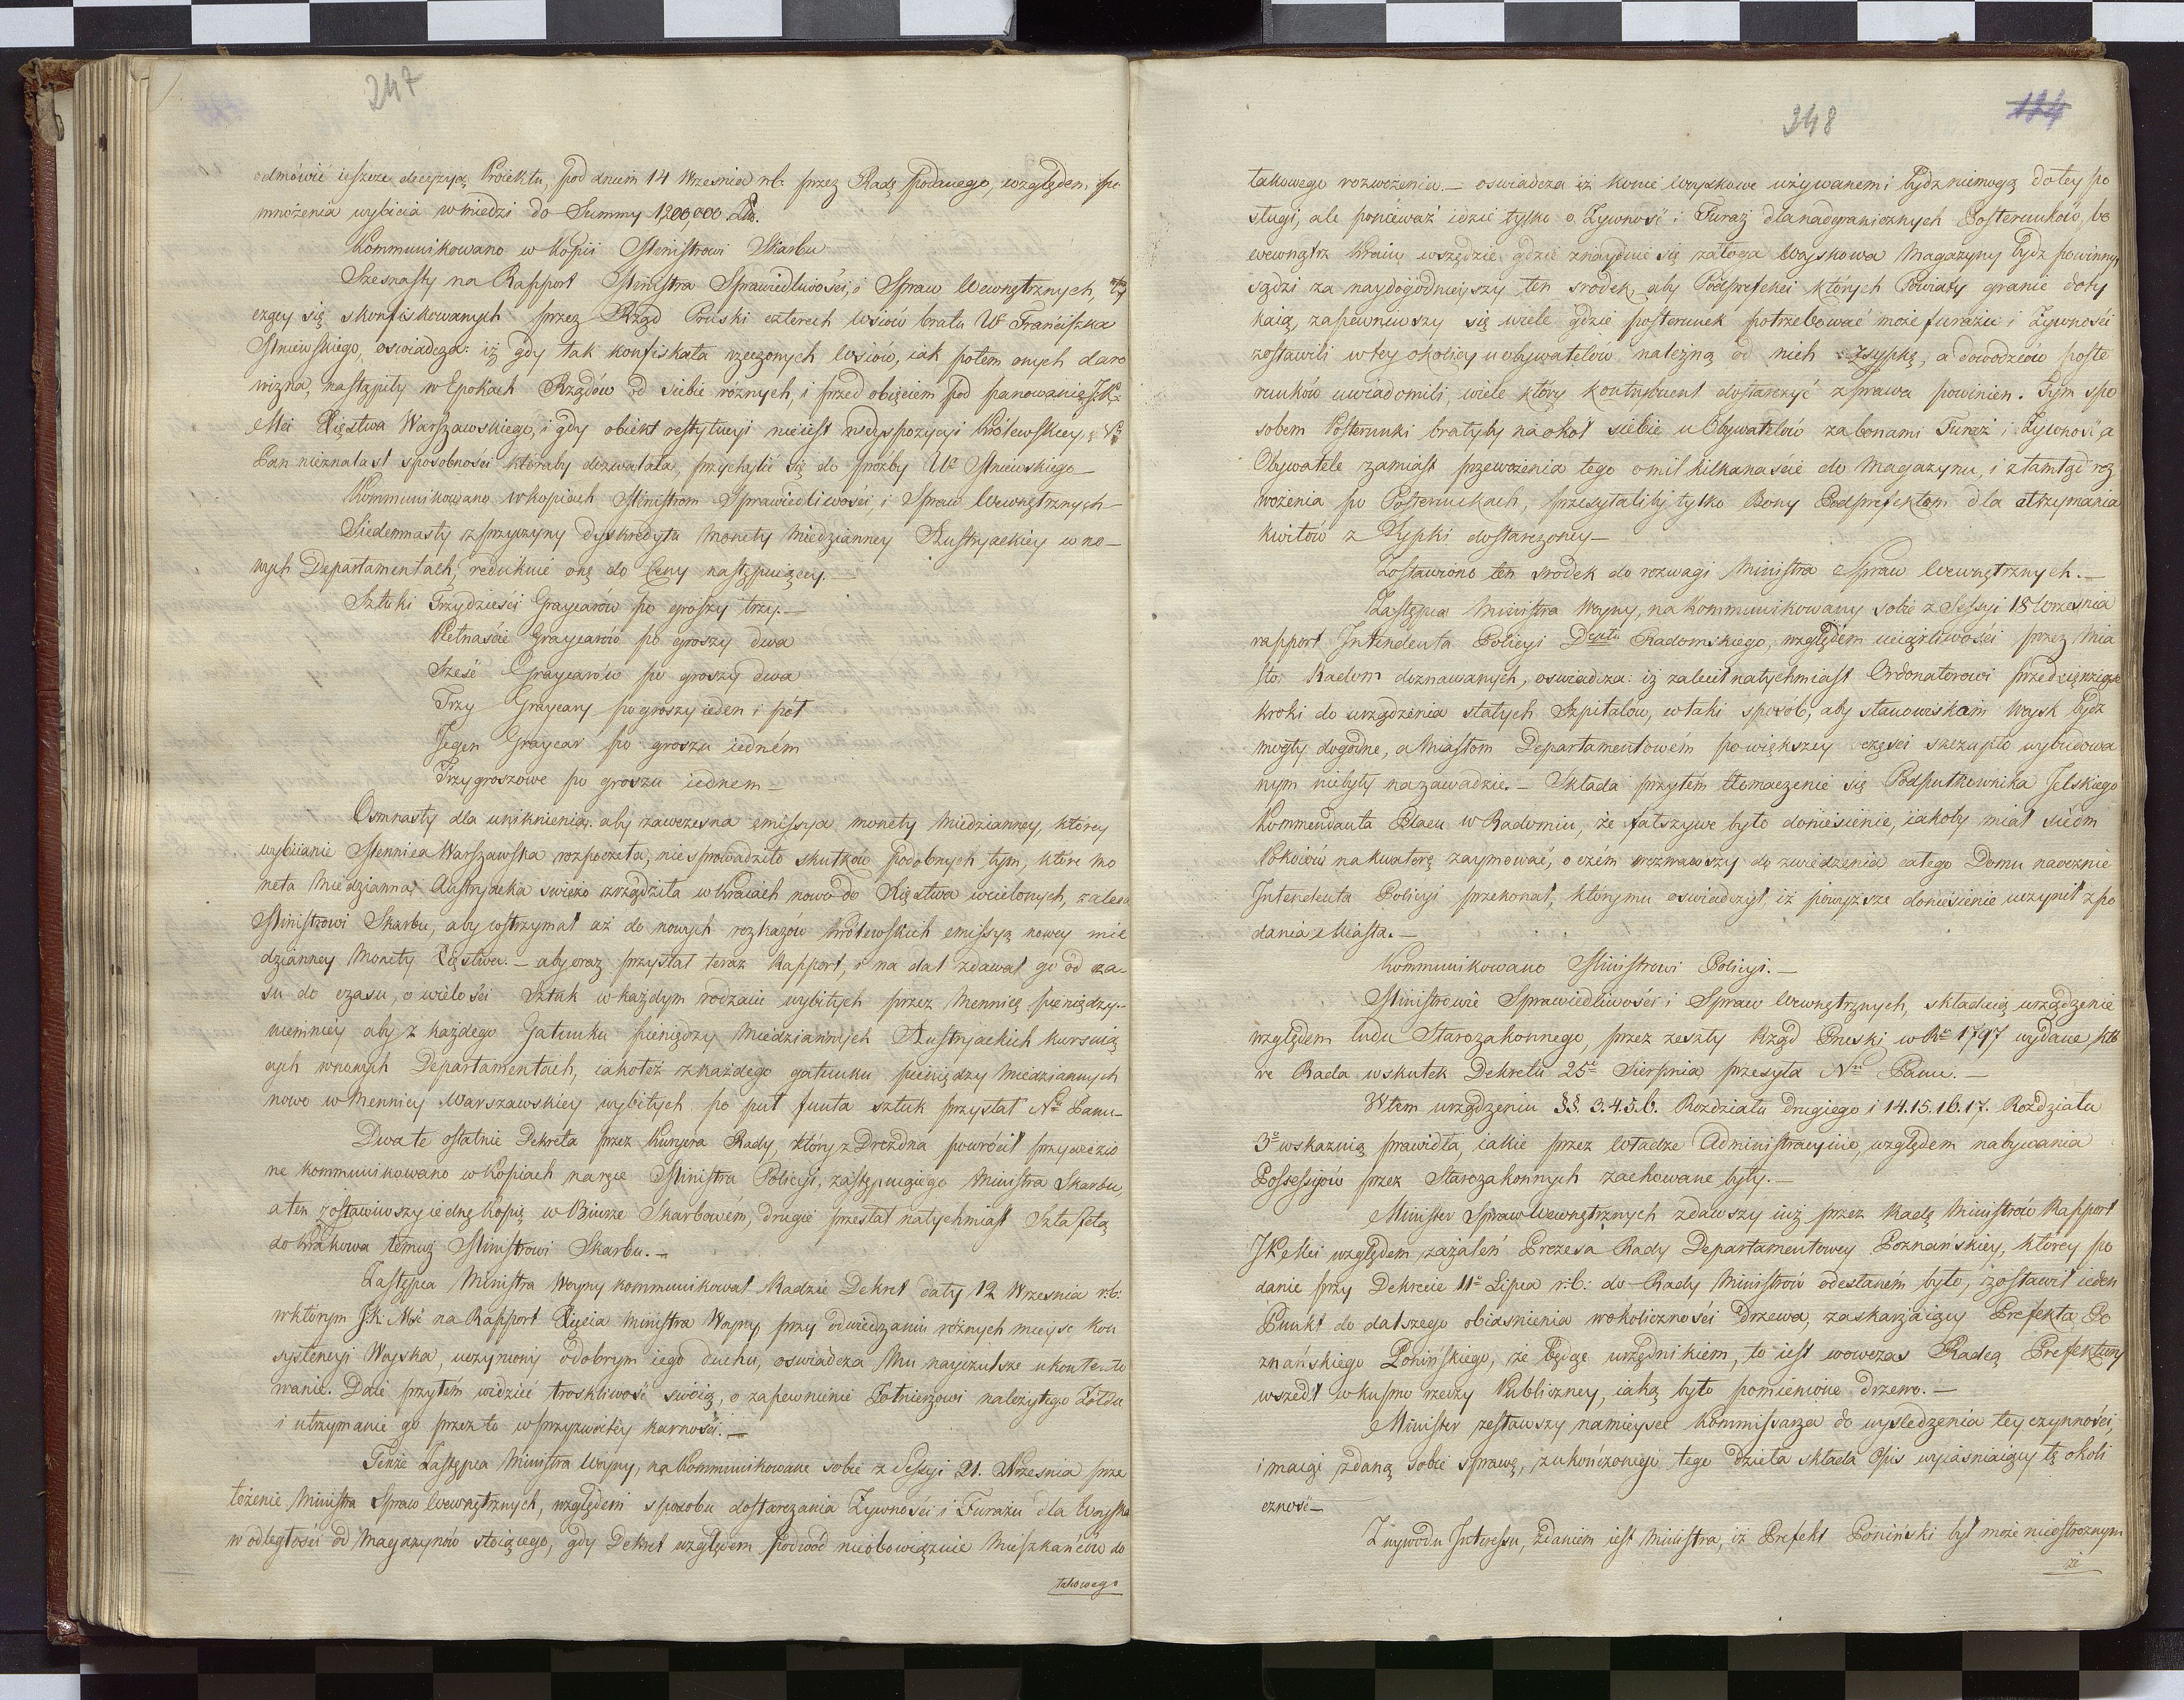 247
odmówić ieszcze decyzyą Proiektu, pod dniem 14 Wrzesnia r.b. przez Radę podanego, względem po
mnożenia wybicia w miedzi do Summy 1200,000 Zł.
Kommunikowano w kopii Ministrowi Skarbu
Szesnasty na Rapport Ministra Sprawiedliwości, i Spraw Wewnętrznych, ty
czący się skonfiskowanych przez Rząd Pruski czterech wsiów brata Wo Franciszka
Mniewskiego, oswiadcza: iż gdy tak konfiskata rzeczonych wsiów, iak potem onych daro
wizna, nastąpiły w Epokach Rządów od siebie różnych, i przed obięciem pod panowanie J.K.
Mci Xięstwa Warszawskiego, i gdy obiekt restytucyi nieiest w dyspozycyi Królewskiey, Nny
Pan nieznalazł sposobności któraby dozwalała, przychylić się do prozby Wo Mniewskiego
Kommunikowano w kopiach Ministrom Sprawiedliwości, i Spraw Wewnętrznych
Siedemnasty z przyczyny dyskredytu monety miedzianney Austryackiey w no
wych Departamentach, redukuie onę do Ceny następuiącey. —
Sztuki Trzydzieści Graycarów po groszy trzy. —
Piętnaście Graycarów po groszy dwa
Sześć Graycarów po groszy dwa
Trzy Graycary po groszy ieden i pół
Jeden Graycar po groszu iedném
Trzygroszowe po groszu iednem —
Osmnasty dla uniknienia, aby zawczesna emissya monety miedzianney, którey
wybiianie Mennica Warszawska rozpoczęła, nie sprowadziło skutków podobnych tym, które mo
neta miedzianna Austryacka swieżo zrządziła w Kraiach nowo do Xięstwa wcielonych, zaleca
Ministrowi Skarbu, aby wstrzymał aż do nowych rozkazów Królewskich emissyą nowey mie
dzianney monety Xięstwa. — aby oraz przysłał teraz Rapport, i na dal zdawał go od cza-
su do czasu, o wielości Sztuk w każdym rodzaiu wybitych przez Mennicę pieniędzy.
niemniey aby z każdego Gatunku pieniędzy miedziannych Austryackich kursuią
cych w nowych Departamentach, iakoteż z każdego gatunku pieniędzy miedziannych
nowo w Mennicy Warszawskiey wybitych po puł funta sztuk przysłał Nu Panu—
Dwa te ostatnie Dekreta przez Kuryera Rady, który z Drezdna powrócił przywiezio
ne kommunikowano w Kopiach na ręce Ministra Policyi, zastępuiącego Ministra Skarbu,
a ten zostawiwszy iednę kopię w Biurze Skarbowém, drugie przesłał natychmiast Sztafetą
do Krakowa temuż Ministrowi Skarbu. —
Zastępca Ministra Woyny kommunikował Radzie Dekret daty 12 Wrzesnia r.b.
w którym J.K. Mść na Rapport Xięcia Ministra Woyny przy odwiedzaniu różnych mieysc kon
systencyi Woyska, uczyniony o dobrym iego duchu, oswiadcza Mu nayczulsze ukontento
wanie. Daie przytém widzieć troskliwość swoią, o zapewnienie Żołnierzowi należytego Żołdu
i utrzymanie go przez to w przyzwoitéy karności. —
Tenże Zastępca Ministra Woyny, na kommunikowane sobie z Sessyi 21. Wrzesnia prze
łożenie Ministra Spraw Wewnętrznych, względem sposobu dostarczania Żywności i Furażu dla Woyska
w odległości od Magazynów stoiącego, gdy Dekret względem podwód nieobowiązuie Mieszkańców do
takowego
348
124
takowego rozwożenia. — oswiadcza iż konie woyskowe używanemi bydz niemogą do tey po
sługi, ale ponieważ idzie tylko o Żywność i Furaż dla nadgranicznych Posterunków, bo
wewnątrz Kraiu wszędzie gdzie znayduie się załoga Woyskowa Magazyny bydz powinny,
sądzi za naydogodnieyszy ten srodek, aby Podprefekci których Powiaty granic doty
kaią, zapewniwszy się wiele gdzie posterunek potrzebować może furażu i Żywności
zostawili w tey okolicy u obywatelów należną od nich Zsypkę, a dowodzców poste
runków uwiadomili, wiele który kontrybuent dostarczyć z prawa powinien. Tym spo
sobem Posterunki brałyby naokoł siebie u Obywatelów za bonami Furaż i Żywność, a
Obywatele zamiast przewożenia tego o mil kilkanaście do Magazynu, i ztamtąd roz
wożenia po Posterunkach, przesyłaliby tylko Bony Podprefektom dla otrzymania
kwitów z Zsypki dostarczoney —
Zostawiono ten srodek do rozwagi Ministra Spraw Wewnętrznych. —
Zastępca Ministra Woyny, na kommunikowany sobie z Sessyi 18 Wrzesnia
rapport Intendenta Policyi Deptu Radomskiego, względem uciążliwości przez Mia
sto Radom doznawanych, oswiadcza: iż zalecił natychmiast Ordonatorowi przedsięwziąć
kroki do urządzenia stałych Szpitalów, w taki sposób, aby stanowiskom Woysk bydz
mogły dogodne, a Miastom Departamentowém po większey części szczupło wybudowa
nym niebyły na zawadzie. — Składa przytém tłomaczenie się Podpułkownika Jelskiego
Kommendanta Placu w Radomiu, że fałszywe było doniesienie, iakoby miał siedm
Pokoiów na kwaterę zaymować, o czém wezwawszy do zwiedzenia całego Domu naocznie
Intendenta Policyi przekonał, któremu oswiadczył, iż powyższe doniesienie uczynił z po
dania Miasta. —
Kommunikowano Ministrowi Policyi. —
Ministrowie Sprawiedliwości i Spraw Wewnętrznych, składaią urządzenie
względem ludu Starozakonnego, przez zeszły Rząd Pruski w Ru 1797 wydane, któ
re Rada w skutek Dekretu 25o Sierpnia przesyła Nu Panu. —
W tem urządzeniu §§. 3. 4. 5. 6. Rozdziału drugiego i 14. 15. 16. 17. Rozdziału
3o wskazuią prawidła, iakie przez Władze Administracyine, względem nabywania
Possessyów przez Starozakonnych zachowane były. —
Minister Spraw Wewnętrznych zdawszy iuż przez Radę Ministrów Rapport
J K Mci względem zażaleń Prezesa Rady Departamentowey Poznańskiey, którey po
danie przy Dekrecie 11o Lipca r.b: do Rady Ministrów odesłaném było, zostawił ieden
Punkt do dalszego obiasnienia w okoliczności Drzewa, zaskarżaiący Prefekta Po
znańskiego Ponińskiego, że będąc urzędnikiem, to iest wowczas Radcą Prefektury
wszedł w kupno rzeczy Publiczney, iaką było pomienione drzewo. —
Minister zesławszy na mieysce Kommissarza do wysledzenia tey czynności,
i maiąc zdaną sobie sprawę, z ukończonego tego dzieła składa Opis wyiasniaiący tę okoli
czność —
Z wywodu Interessu, zdaniem iest Ministra, iż Prefekt Poniński był może nieostrożnym
że